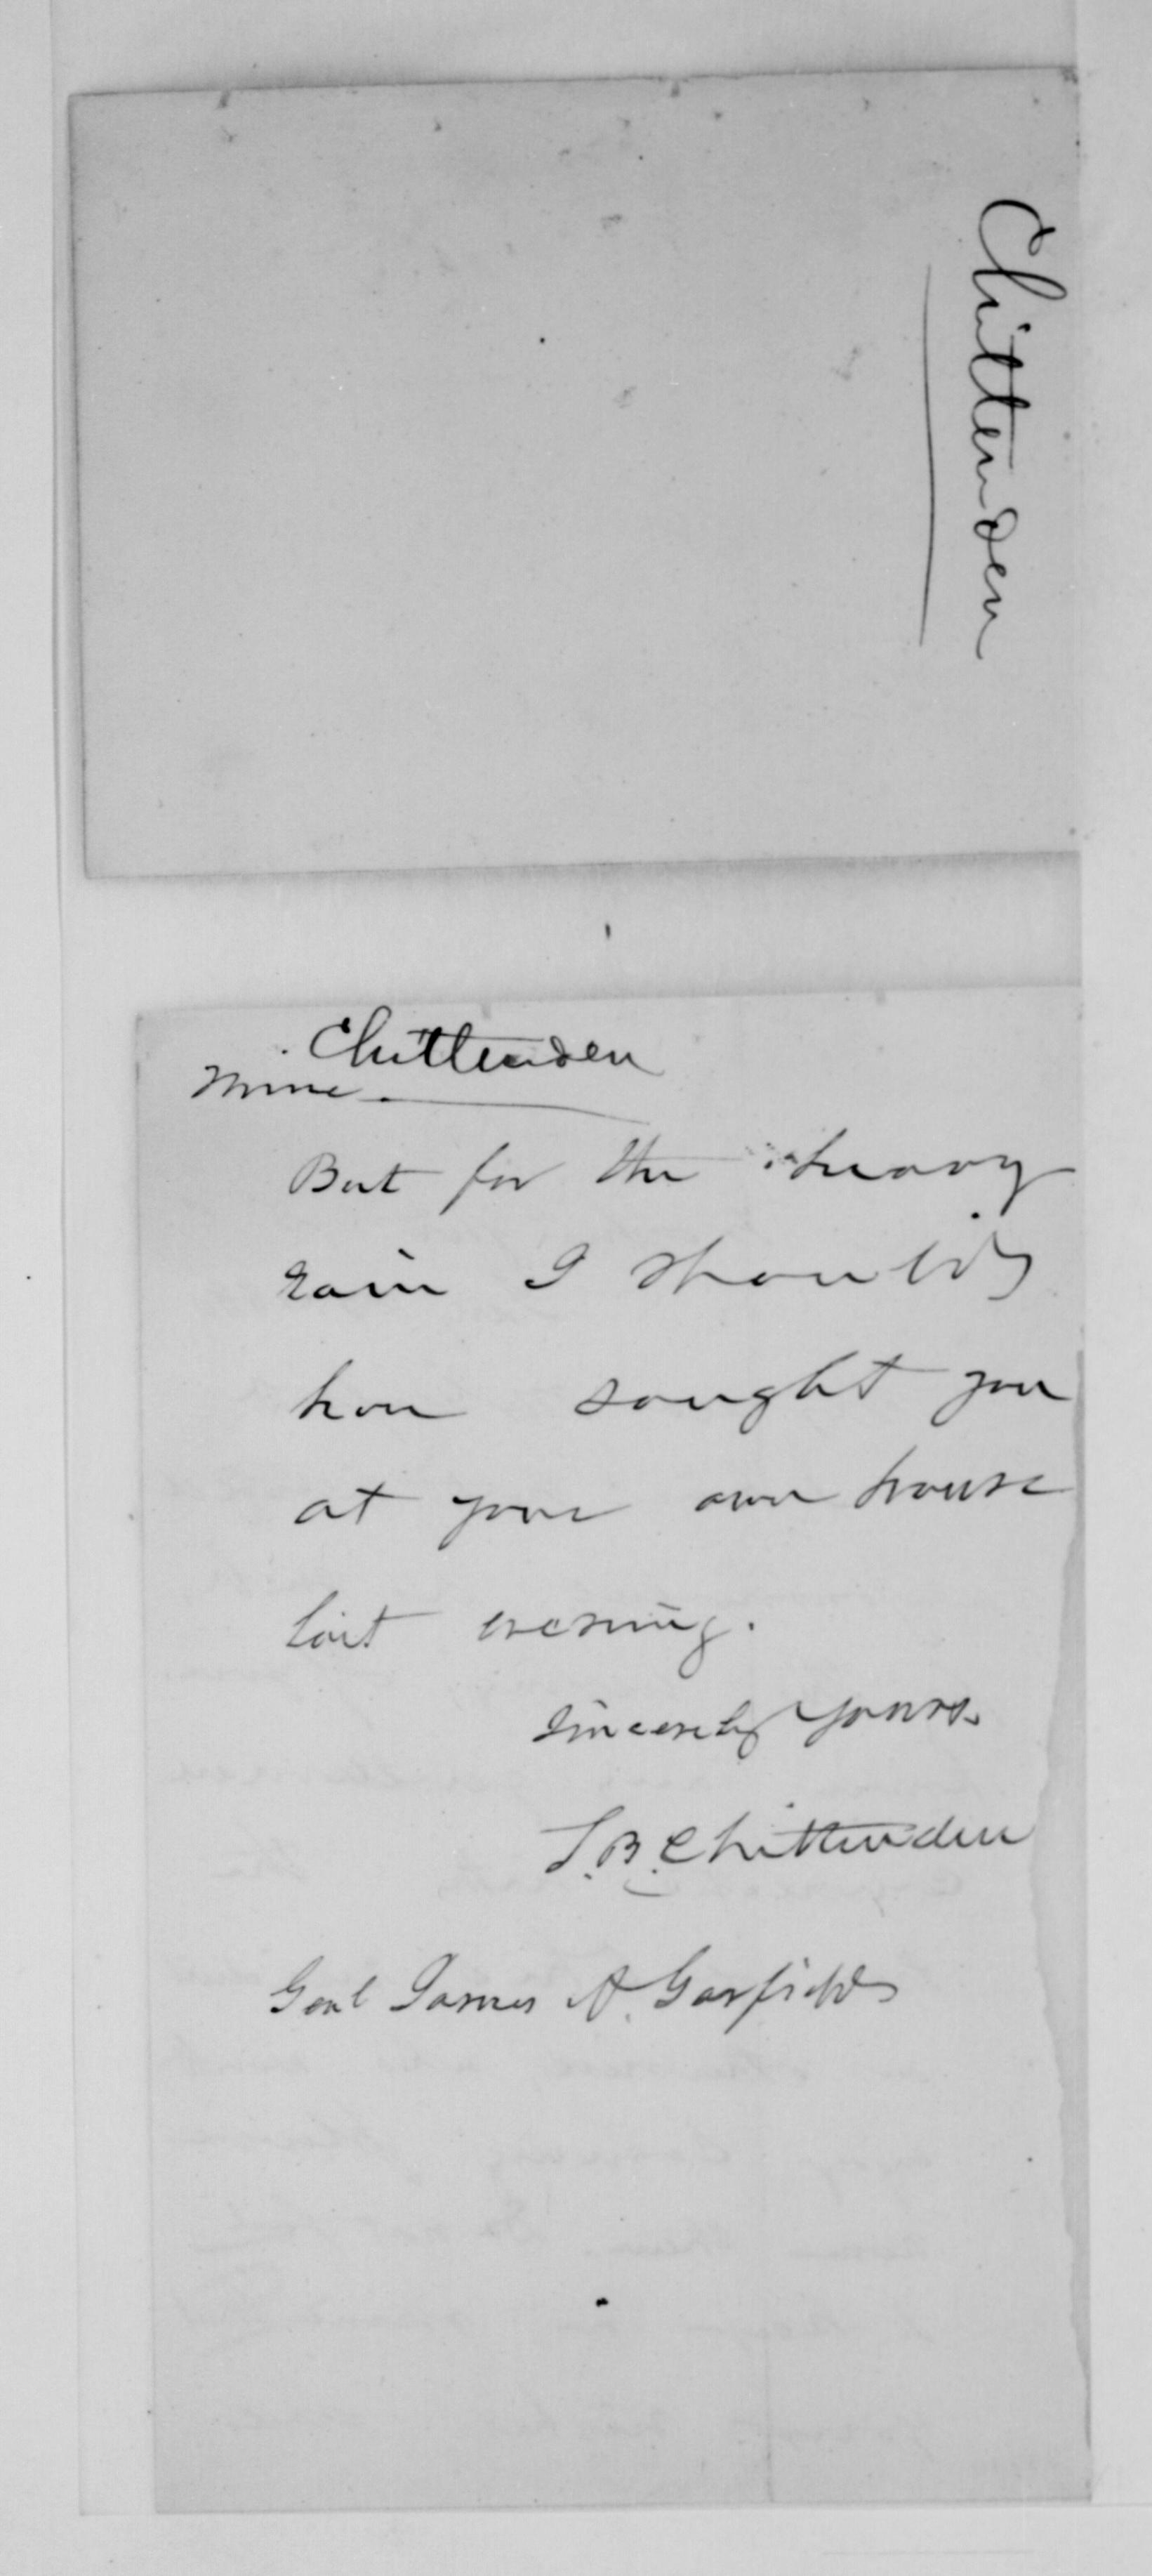 Chittenden
Chittenden
mine
But for the heavy
rain I should
have sought you
at your own house
last evening.
Sincerely yours.
S.B. Chittenden
Genl James A. Garfield